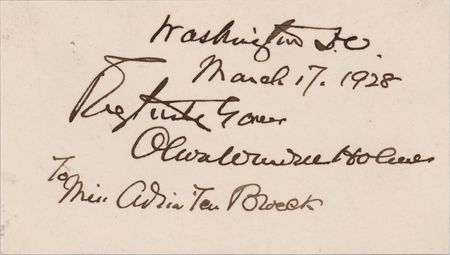 Washington D.C.
March 17. 1928
Very truly Yours
Oliver Wendell Holmes
To
Miss Ten Broeck